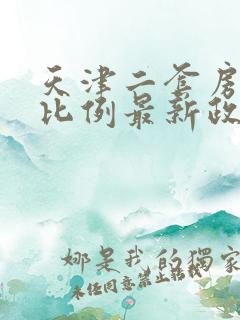 天津二套房
比例最新政
娜是我的獨家
未经同意禁止转载